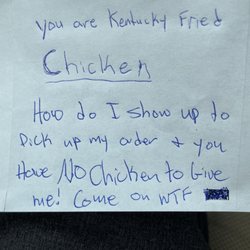 you are Kentucky Fried
Chicken
How do I show up to
Pick up my order & you
Have NO Chicken to Give
me! Come on WTF